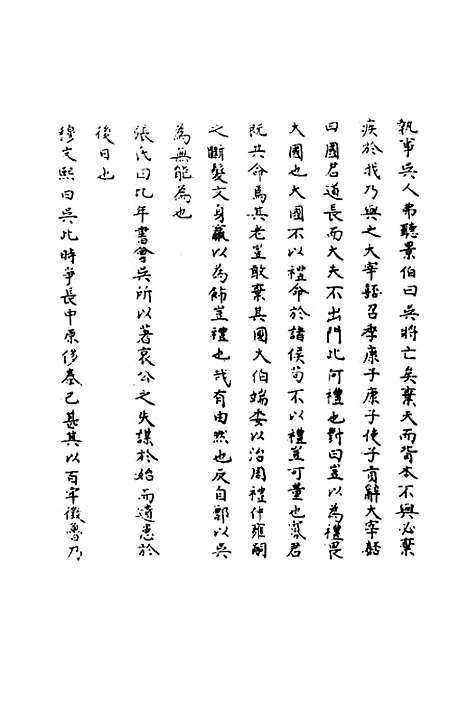 執事吳人弗聽景伯曰吳將亡矣棄天而背本不與必棄
疾於我乃與之大宰嚭召季康子康子使子貢辭大宰嚭
曰國君道長而大夫不出門此何禮也對曰豈以為禮畏
大國也大國不以禮命於諸侯茍不以禮豈可量也寡君
既共命焉其老豈敢棄其國大伯端委以治周禮仲雍嗣
之斷髮文身臝以為飾豈禮也㦲有由然也反自鄫以吳
為無能為也
張氏曰比年書㑹吳所以著哀公之失謀於始而遺患於
後日也
穆文熙曰吳此時爭長中原侈泰已甚其以百牢徵魯乃